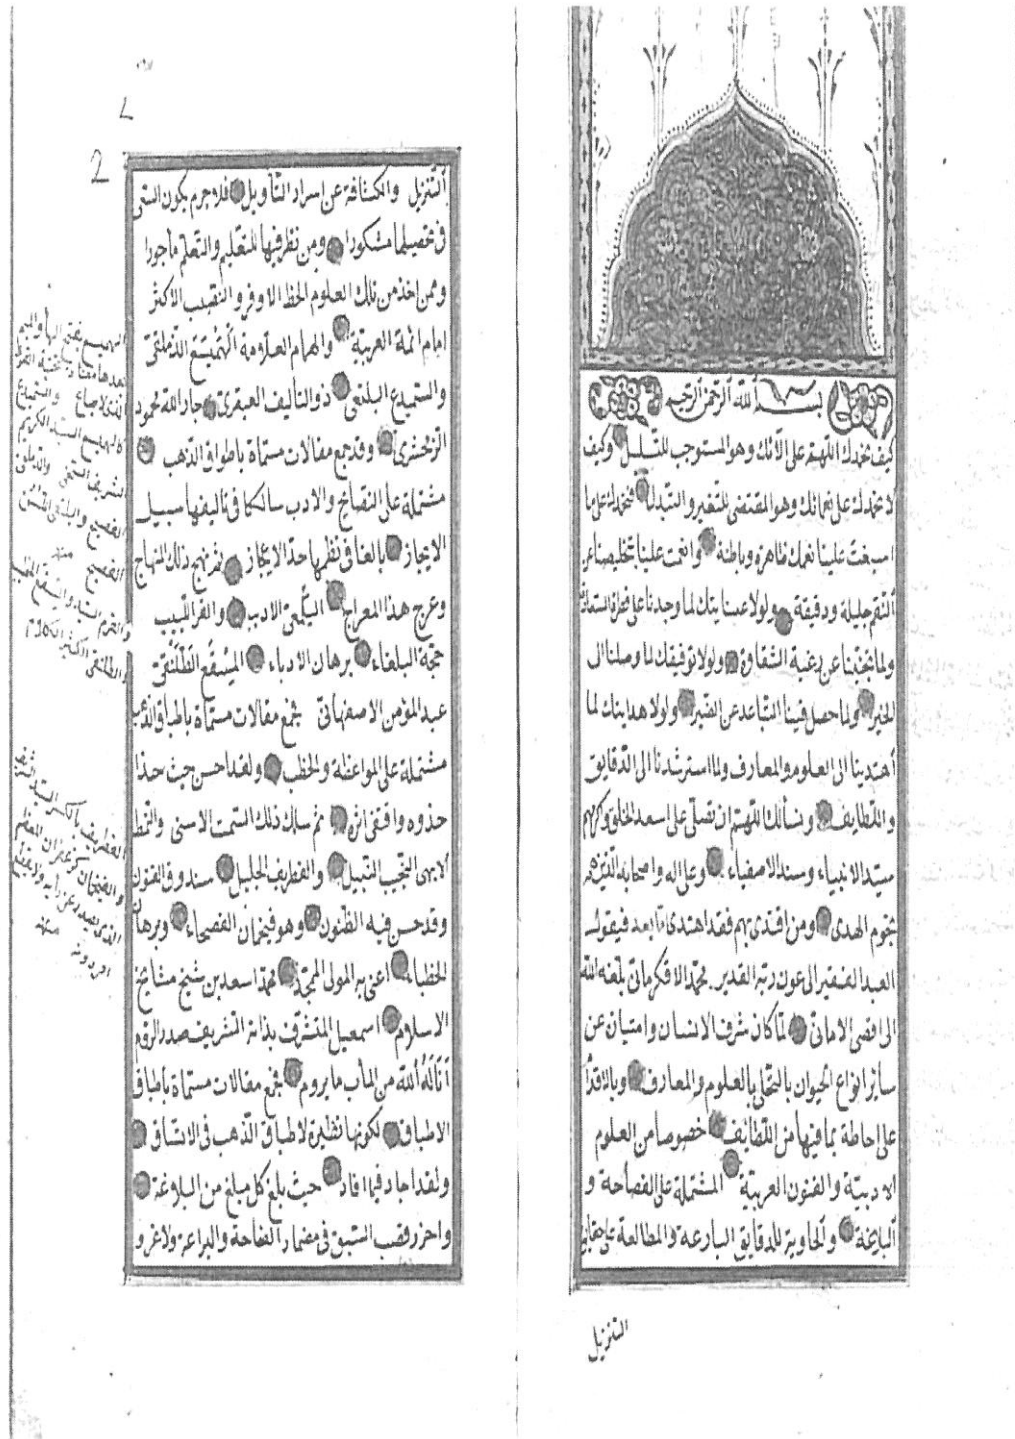 بسم الله الرحمن الرحيم
كيف نحمدك اللهم على الآئك وهو المستوجب للتسلسل وكيف
لا نحمدك على نعمائك وهو المقتضى للتغير والتبدل نحمدك على ما
اسبغت علينا نعمك ظاهرة وباطنة وانعمت علينا بتخليصنا عن
النقم جليلة ودقيقة ولولا عنايتك لما وجدنا على فطرة السعادة
ولما تجنبنا عن رغبة الشقاوة ولولا توفيقك لما وصلنا الى
الخير ولما حصل فينا التباعد عن الضير ولولا هدايتك لما
اهتدينا الى العلوم والمعارف ولما استرشدنا الى الدقايق
واللطايف ونسألك اللهم ان تصلى على اسعد الخلق وكلهم
سيد الانبياء وسند الاصفياء وعلى اله واصحابه الذين هم
نجوم الهدى ومن اقتدى بهم فقد اهتدى اما بعد فيقول
العبد الفقير الى عون ربه القدير محمد الاقكرمانى بلغه الله
الى اقصى الامانى لما كان شرف الانسان وامتيازه عن
ساير انواع الحيوان بالتحلى بالعلوم والمعارف وبالاقدار
على احاطة بما فيها من اللطايف خصوصا من العلوم
الادبية والفنون العربية المشتملة على الفصاحة و
البلاغة والحاوية للدقايق البارعة والمطالعة على حقايق
التنزيل
2
التنزيل والكشافة عن اسرار التأويل فلا جرم يكون السعى
فى تحصيلها مشكورا ومن نظر فيها للتعليم والتعلم مأجورا
وممن اخذ من تلك العلوم الحظ الاوفر والنصيب الاكثر
امام ائمة العربية والهمام العلامة الهميسع الذملقى
والسميدع البلقعى ذو التأليف العبقرى جار الله محمود
الزمخشرى وقد جمع مقالات مسماة باطواق الذهب
مشتملة على النصايح والادب سالكا فى تاليفها سبيل
الايجاز بالغا فى نظمها حد الاعجاز ثم نهج ذلك المنهاج
وعرج هذا المعراج اليلمعى الاديب والقرم اللبيب
حجة البلغاء برهان الادباء المسقع الطلنقى
عبد المؤمن الاصفهانى بجمع مقالات مسماة باطباق الذهب
مشتملة على المواعظة والخطب ولقد احسن حيث حذا
حذوه واقتفى اثره ثم سلك ذلك السمت الاسنى والنمط
الابهى النجيب النبيل والغطريف الجليل صندوق الفنون
وقد حسن فيه الظنون وهو فيخمان الفصحاء وبرهان
الخطباء اعنى به المولى الممجد محمد اسعد بن شيخ مشايخ
الاسلام اسمعيل المتشرف بذاته التشريف صدر الروم
اناله الله من المأب ما يروم بجمع مقالات مسماة باطباق
الاطباق لكونها نظيرة لاطباق الذهب فى الاتساق
ولقد اجاد فيما افاد حيث بلغ كل مبلغ من البلاغة
واحرز قصب السبق فى مضمار الفصاحة والبراعة ولا غرو
الهميسع بفتح الهاء والميم
والسميدع
السيد الكريم
منه
الغطريف بالكسر السيد الشريف
والفيخمان كزعفران المعظم
الذى يصدر عن رأيه ولا يقطع
امر دونه منه